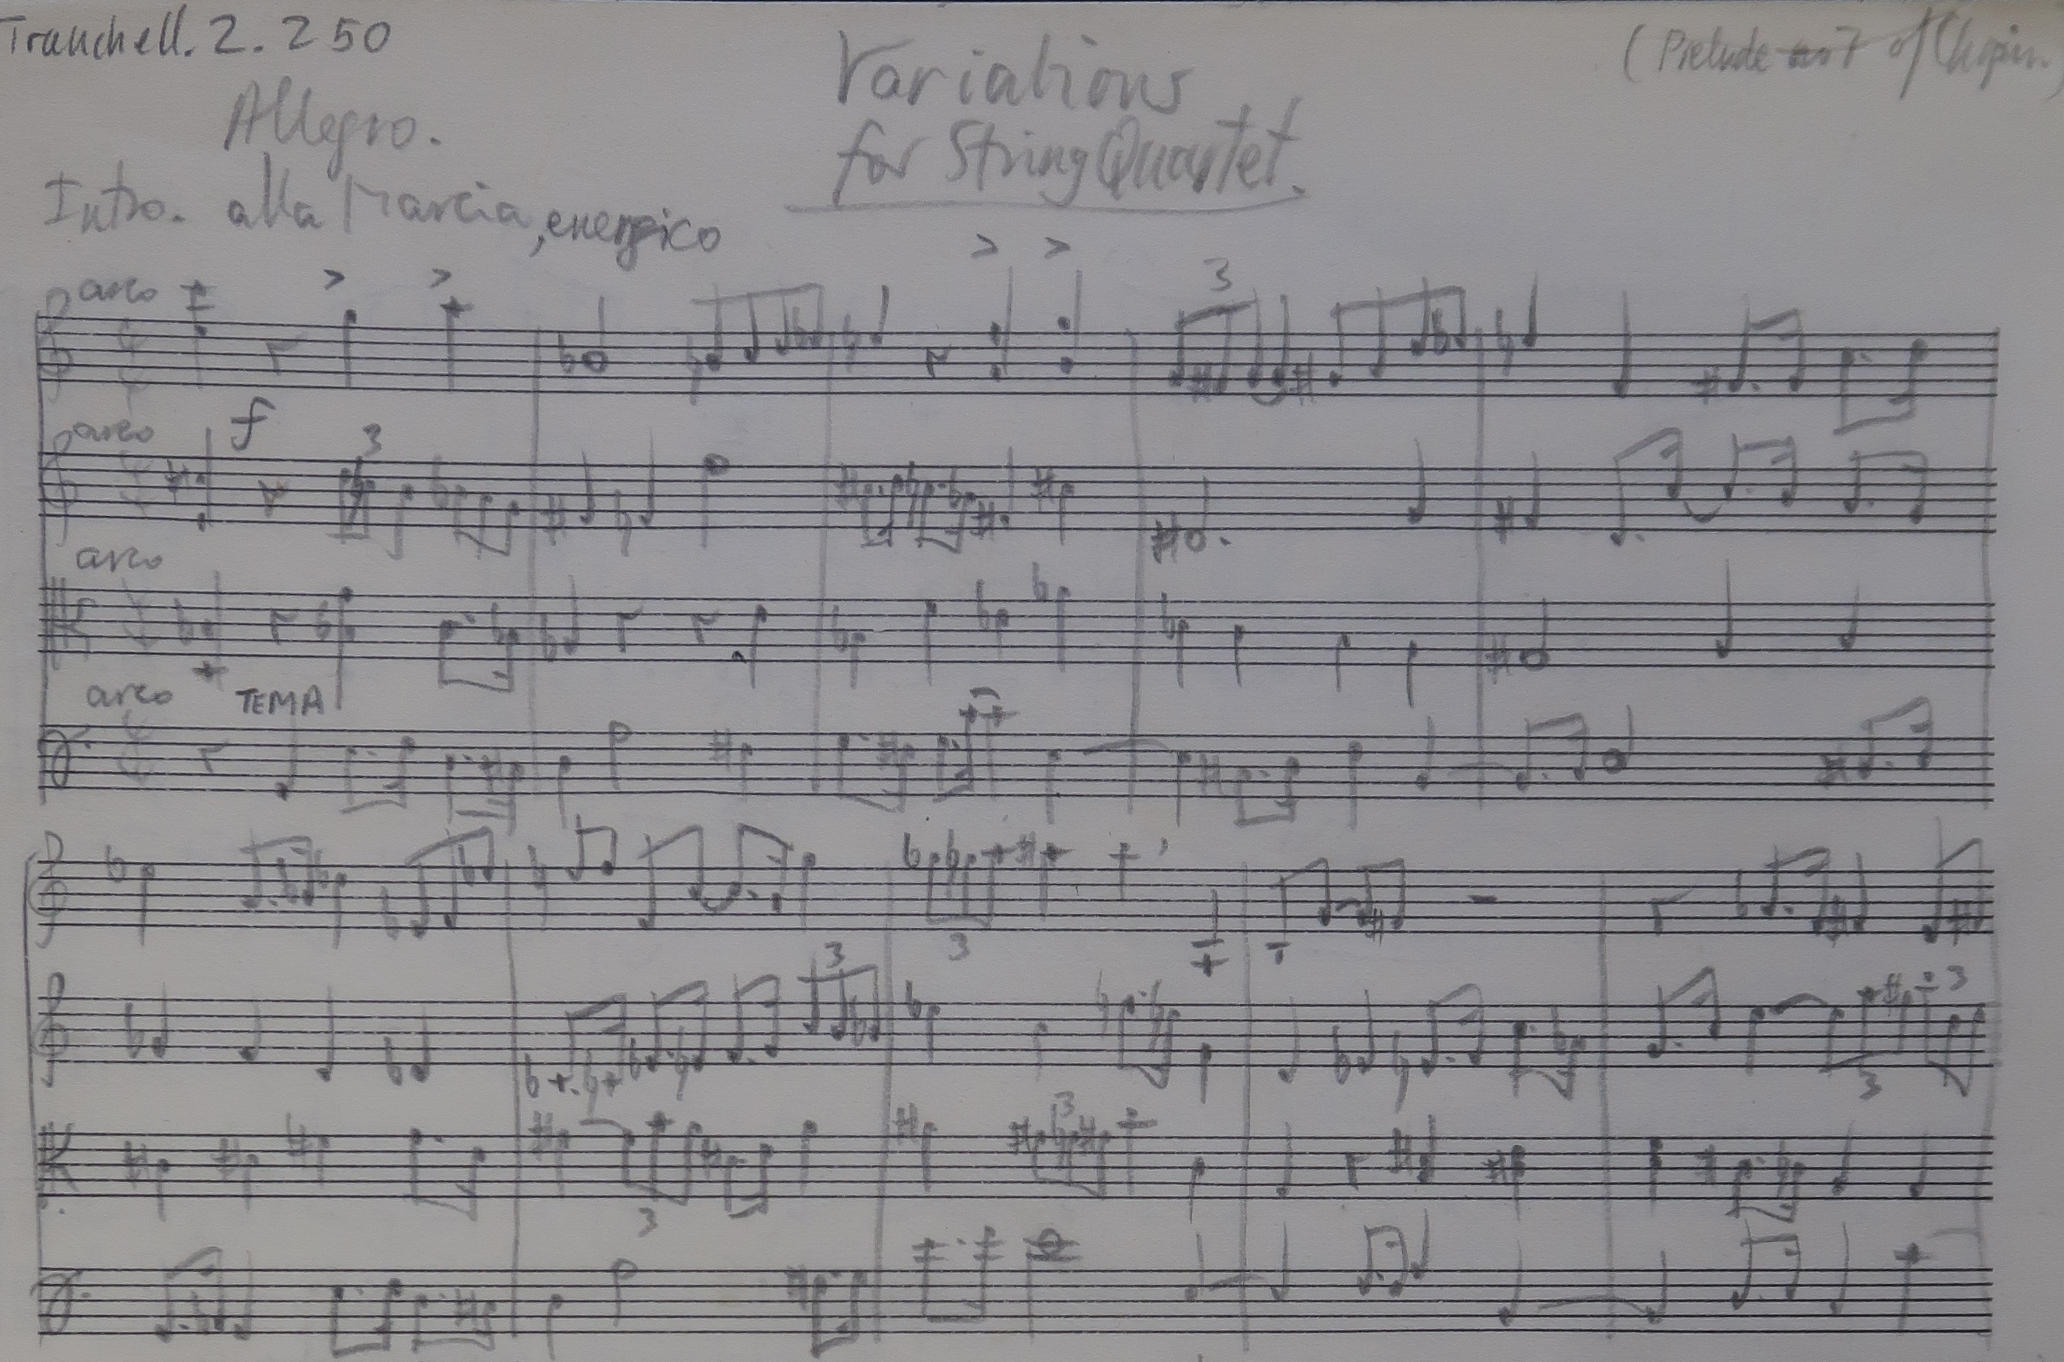 Tranchell. 2. 250
Variations
for String Quartet.
(Prelude no 7 of Chopin.)
Allegro.
Intro. alla Marcia, energico
arco
f
3
arco
3
arco
arco TEMA
3
3
3
3
3
3